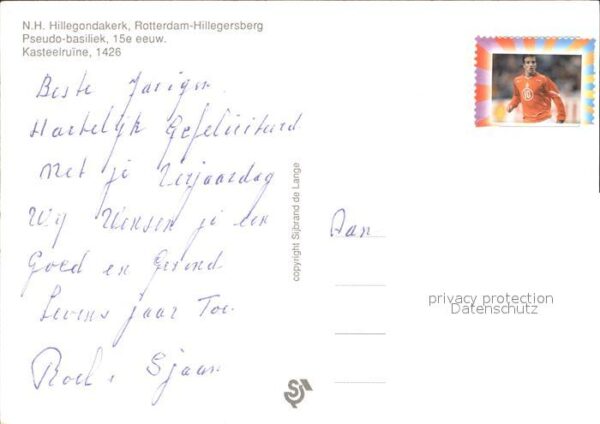 N.H. Hillegondakerk, Rotterdam-Hillegersberg
Pseudo-basiliek, 15e eeuw.
Kasteelruïne, 1426
Beste Jarigen
Hartelijk Gefeliciteerd
met je Verjaardag
Wij Wensen je een
Goed en Gezond
Levens jaar Toe.
Roel, Sjaan
copyright Sijbrand de Lange
Aan
privacy protection
Datenschutz
10